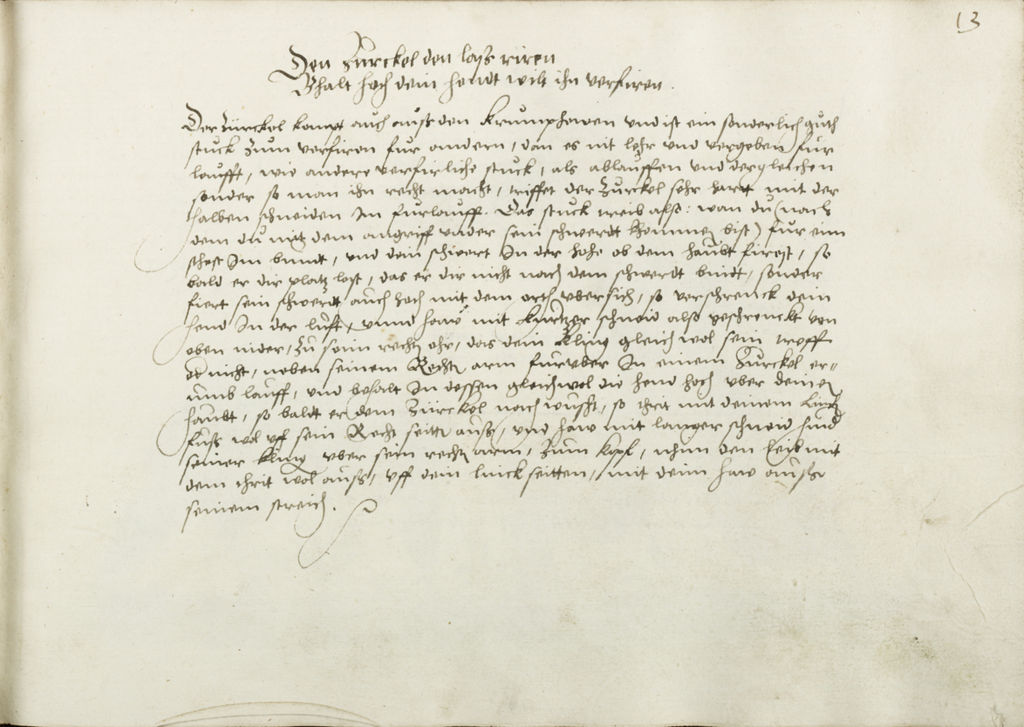 13
Den Zurckel den lass riren
Bhalt hoch dein hendt wilt ihn verfiren.
Der Zürckel kompt auch auss den Krumphewen und ist ein sonderlich guth
stuck zum verfiren fur andern, dan es nit lehr und vergeben fur
laufft, wie andere verfirliche stuck, als ablauffen und dergleichen
sonder so man ihn recht macht, triffet der Zurckel sehr hardt mit der
halben schneiden Im furlauff. Das stuck treib also: wan du (nach
dem du mitt dem angriff under sein schwerdt khommen bist) fur eim
stehst Im bundt, und dein schwert In der höhe ob dem haubt fierest, so
bald er dir platz lost, das er dir nicht nach dem schwerdt bindt, sonder
fiert sein schwerdt auch hoch mit dem orth ubersich, so verschrenck dein
hend In der lufft, unnd haw mit kurtzer schneid also geschrenckt von
oben nider, zu seim recht ohr, das dein kling gleich wol sein treff
od nicht, neben seinem Rechten arm furuber In einem Zurckel er-
umb lauff, und behalt In dessen gleichwol die hend hoch uber deinem
haubt, so baldt er dem Zürckel nach wuscht, so thrit mit deinem Linck
fuss wol uff sein Recht seitten auss, und haw mit langer schneid hind
seiner kling uber sein rechten arm, zum kopf, nhim den leib mit
dem thrit wol auss, uff dein linck seitten, mit deim haw auss
seinem streich.